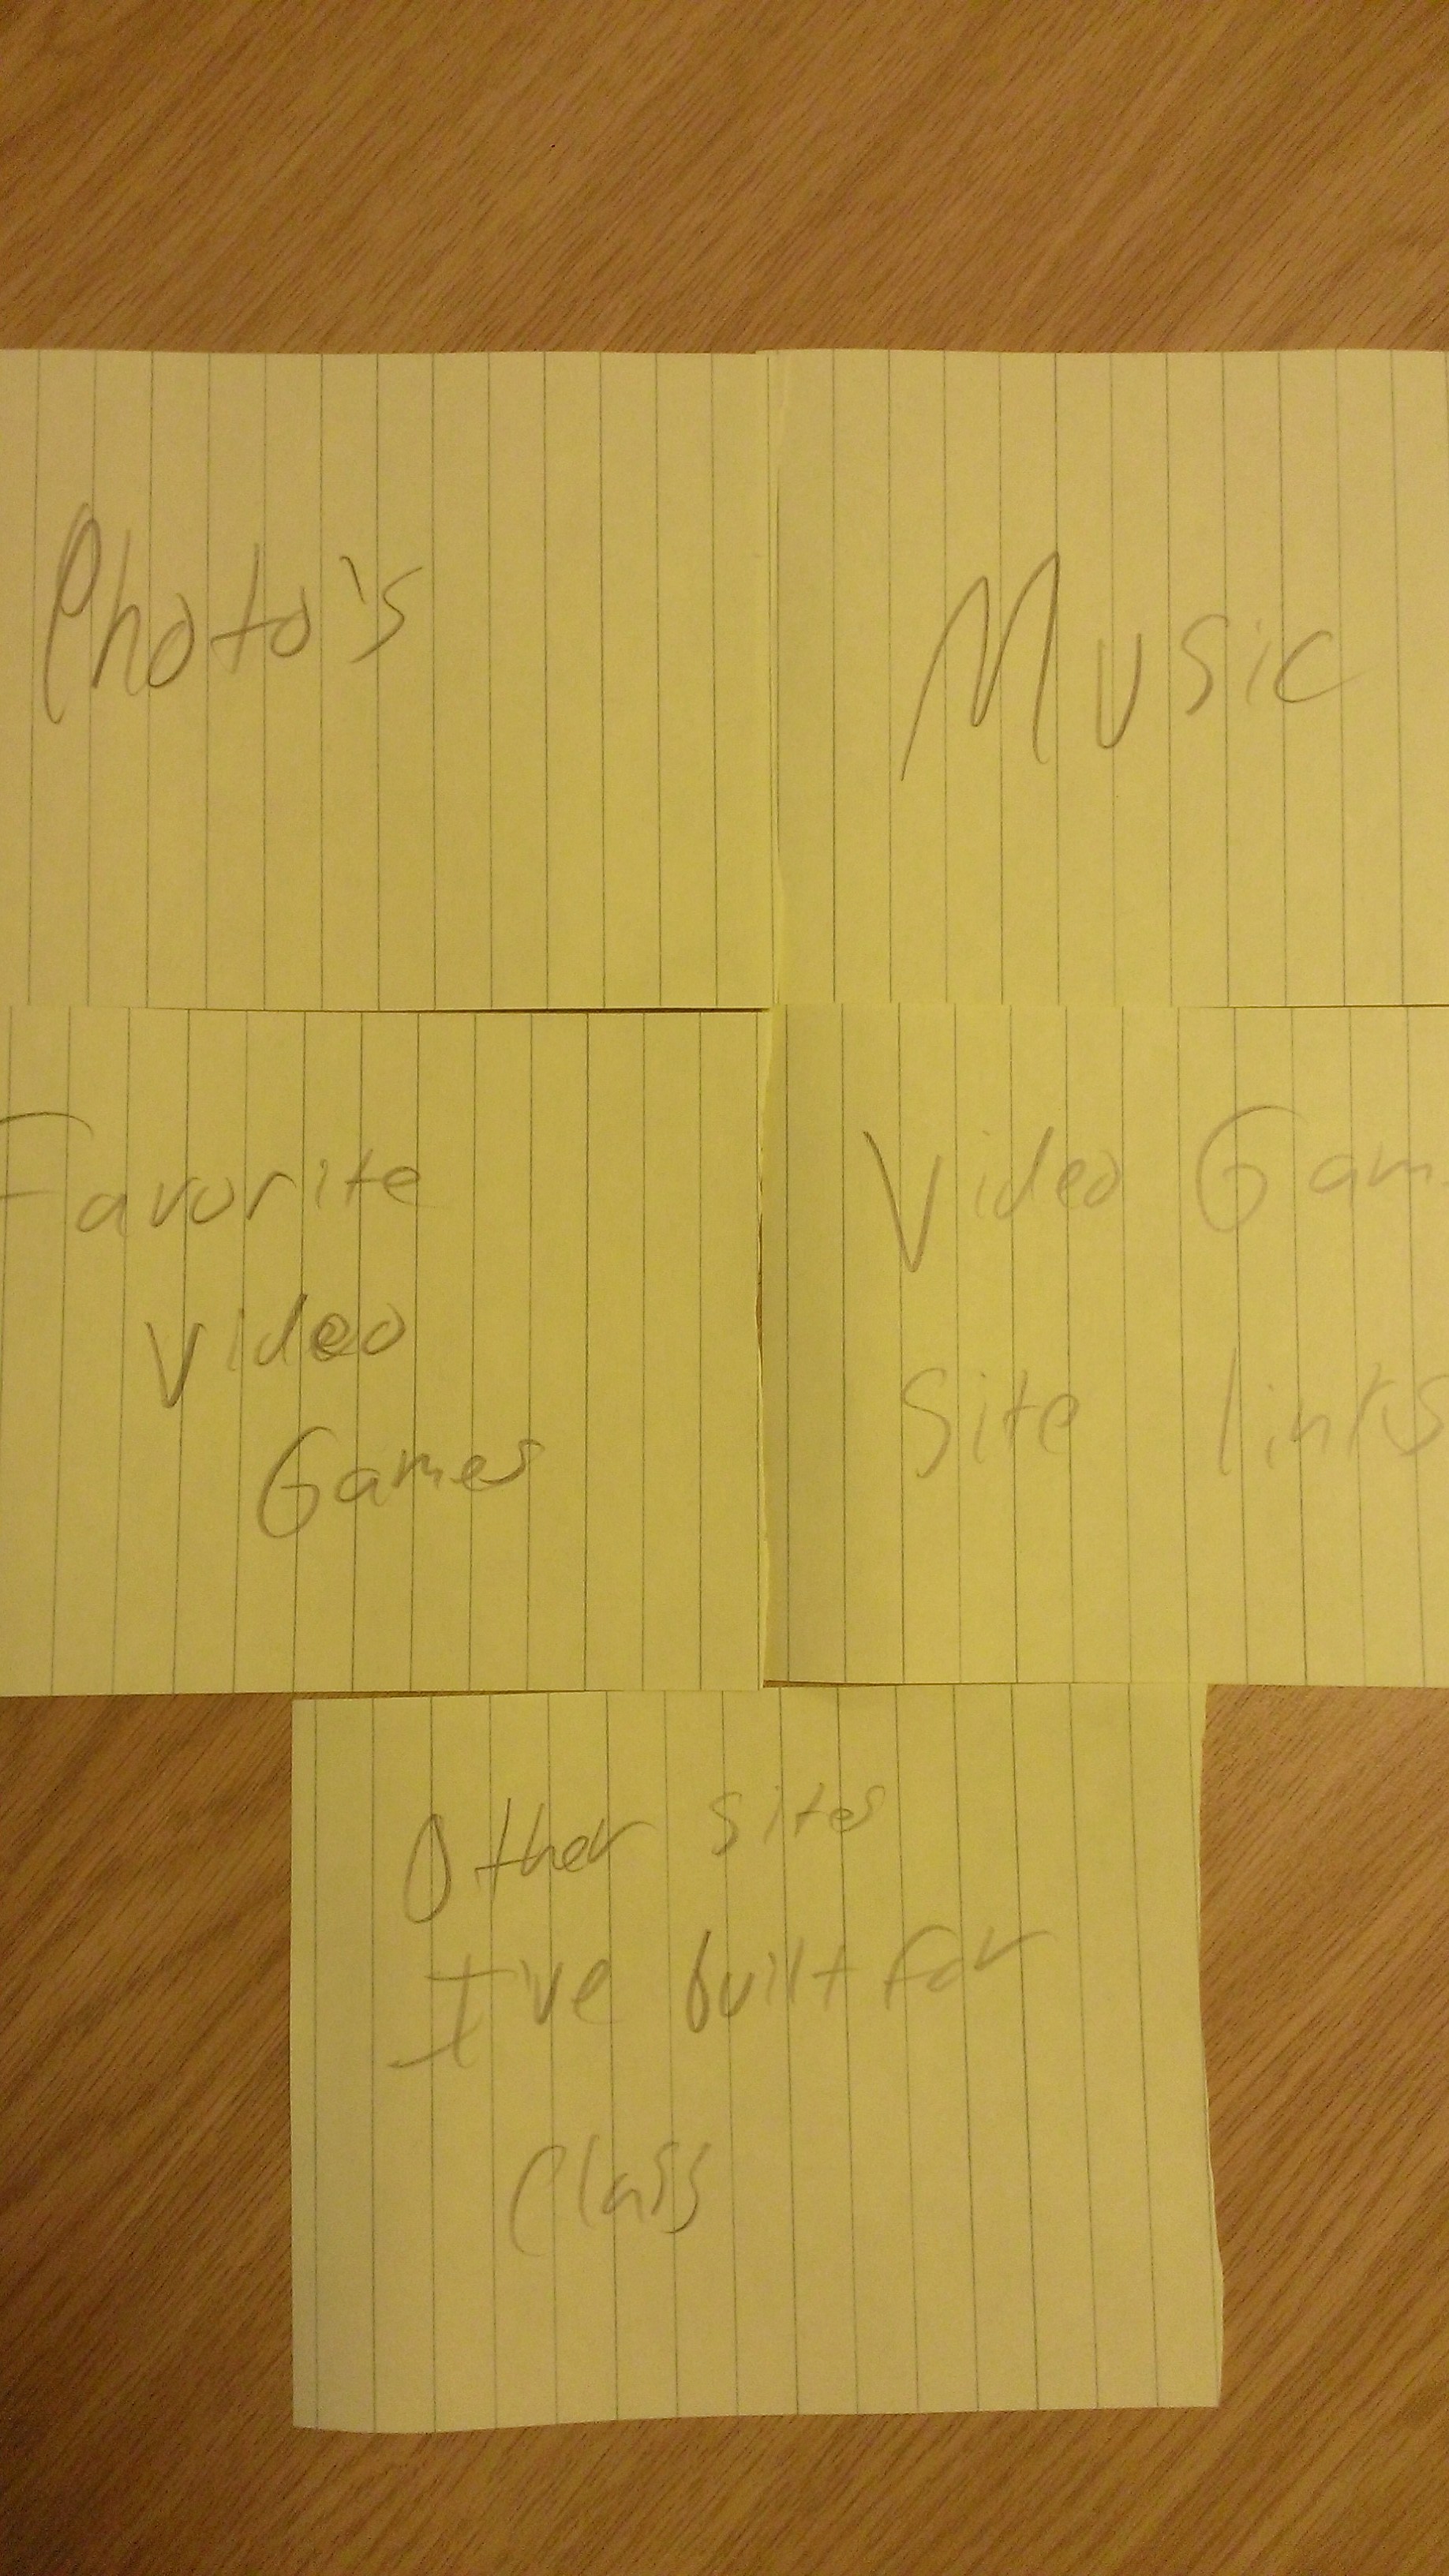 Photo's
Music
Favorite
Video
Games
Video Gam
Site links
Other sites
I've built for
class